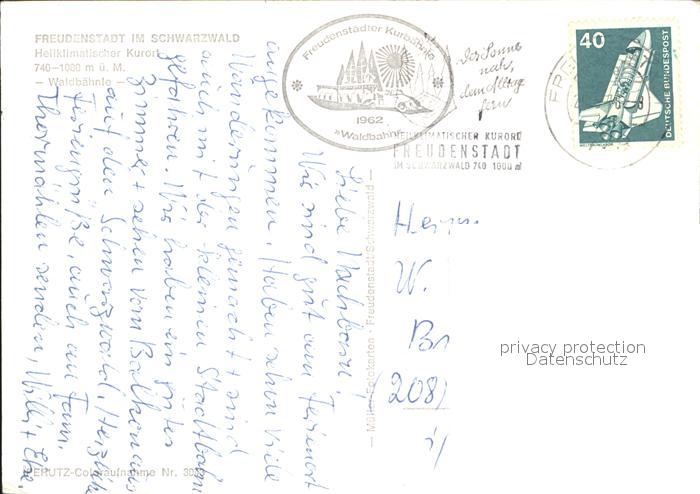 FREUDENSTADT IM SCHWARZWALD
Heilklimatischer Kurort
740–1080 m ü. M.
– Waldbähnle –
Freudenstädter Kurbähnle
1962
»Waldbähnle«
Der Sonne
nah,
dem Alltag
fern
HEILKLIMATISCHER KURORT
FREUDENSTADT
IM SCHWARZWALD 740 1000 m
40
DEUTSCHE BUNDESPOST
Liebe Nachbarn,
Wir sind gut am Ferienort
angekommen. Haben schon viele
Wanderungen gemacht + sind
auch mit der kleinen Stadtbahn
gefahren. Wir haben ein gutes
Zimmer + sehen vom Balkon aus
auf den Schwarzwald. Herzliche
Feriengrüße, auch an Fam.
Thormählen senden, Willi +
– Müller Fotokarten · Freudenstadt/Schwarzwald –
Herrn
W.
(208)
privacy protection
Datenschutz
PERUTZ-Coloraufnahme Nr.